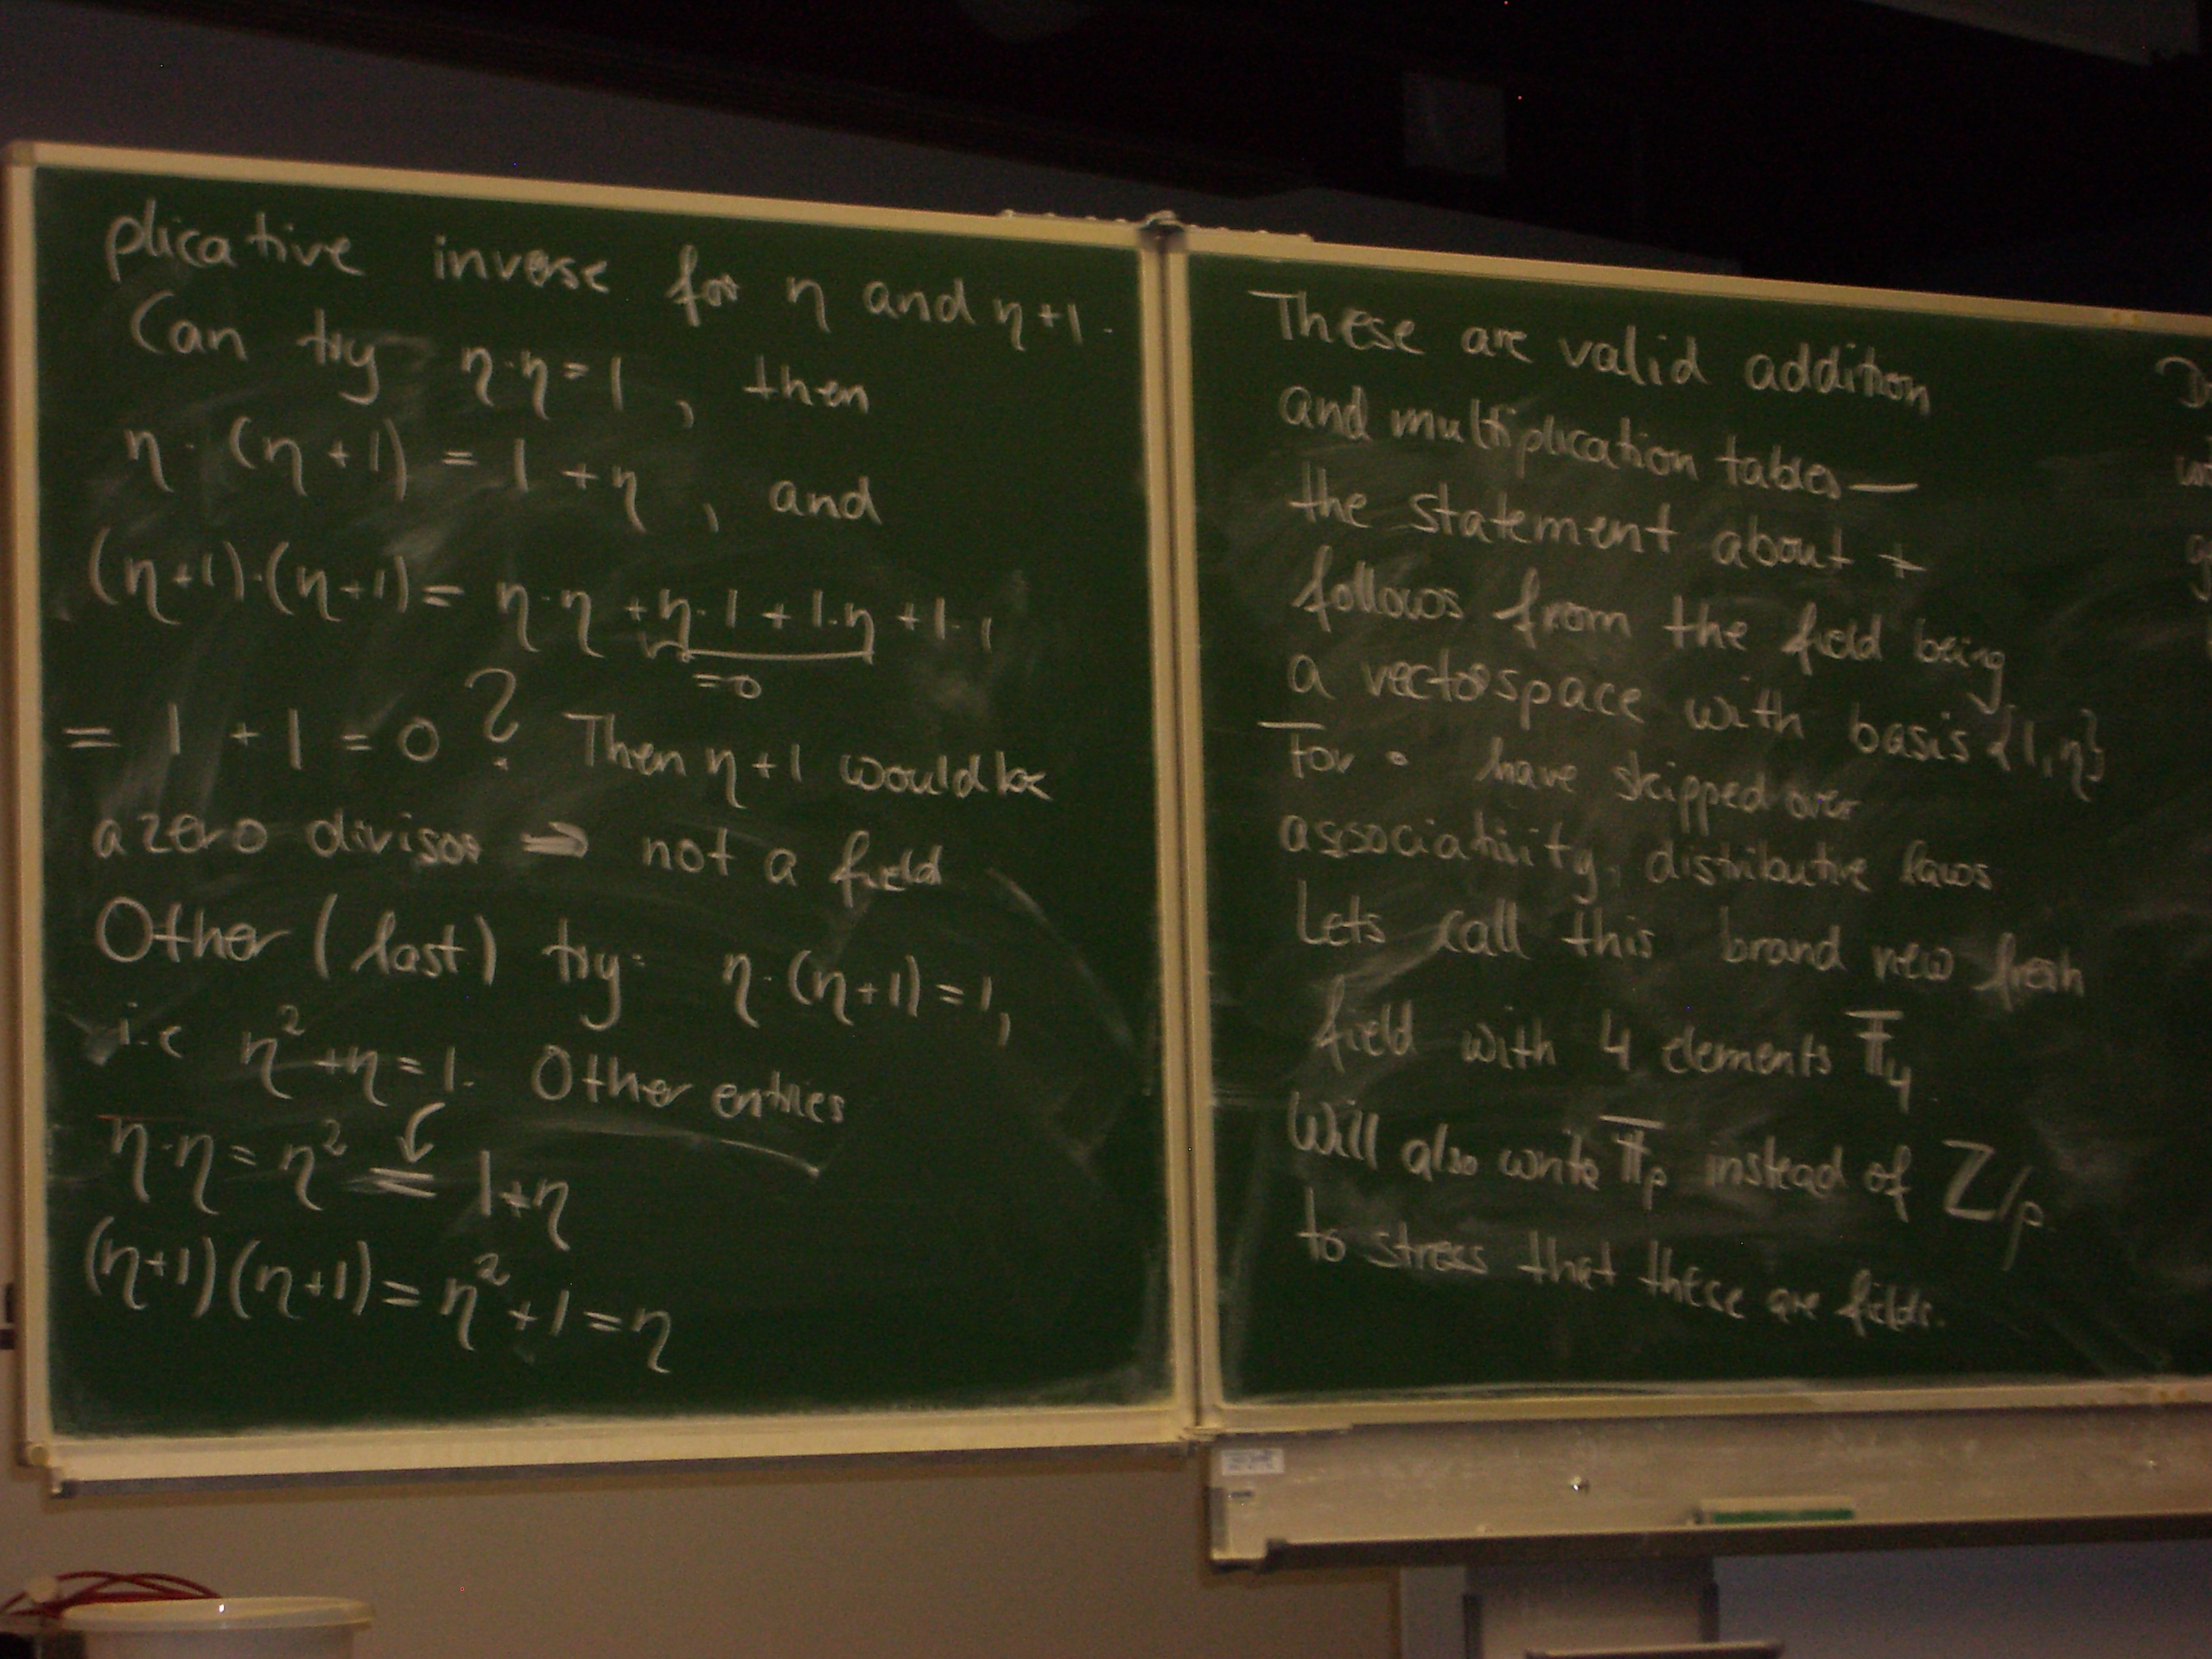 plicative inverse for η and η+1.
Can try η·η=1, then
η·(η+1) = 1+η, and
(η+1)·(η+1)= η·η +η·1 + 1·η +1·1
=0
= 1 + 1 = 0 ? Then η+1 would be
a zero divisor ⇒ not a field
Other (last) try: η·(η+1)=1,
i.e η²+η=1. Other entries
η·η=η² = 1+η
(η+1)(η+1)=η²+1=η
These are valid addition
and multiplication tables—
the statement about +
follows from the field being
a vectorspace with basis {1,η}
For · have skipped over
associativity, distributive laws
Lets call this brand new fresh
field with 4 elements 𝔽₄
Will also write 𝔽ₚ instead of ℤ/p
to stress that these are fields.